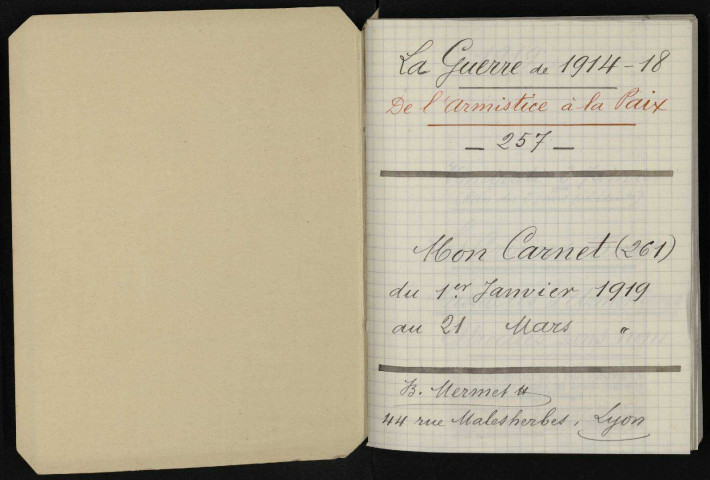 La Guerre de 1914-18
De l'Armistice à la Paix
- 257 -
Mon Carnet (261)
du 1er Janvier 1919
au 21 Mars "
B. Mermet
44 rue Malesherbes, Lyon